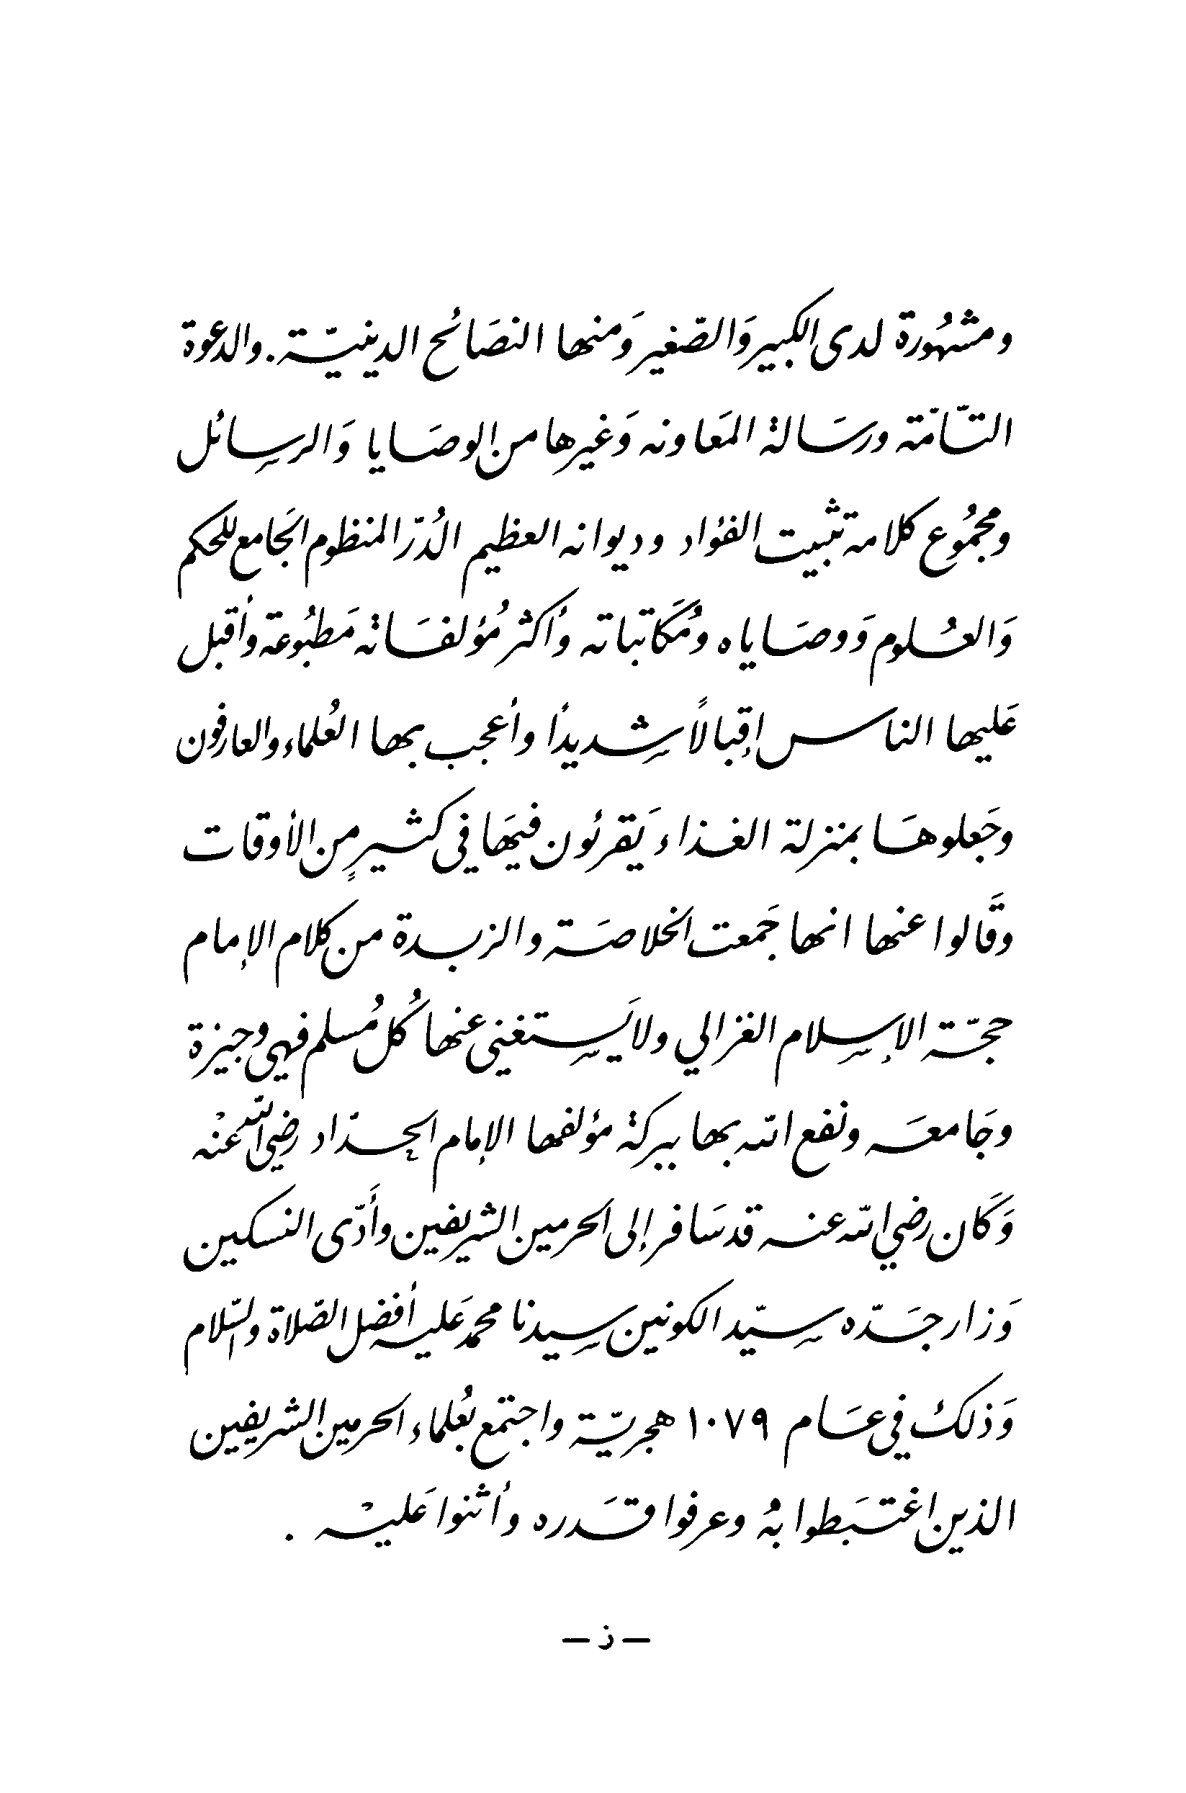 ومشهُورة لدى الكبير وَالصّغير وَمنها النصَائح الدينيّة. والدعوة
التّامّة ورسَالة المَعاونه وَغيرها من الوصَايا وَالرسائل
ومجمُوع كلامه تثبيت الفؤاد وديوانه العظيم الدُرّ المنظوم الجَامع للحكم
وَالعُلوم وَوصَاياه ومُكَاتباته وأكثر مُؤلفَاته مَطبُوعة وأقبل
عَليها الناس إقبالاً شديداً وأعجب بها العُلماء والعارفون
وجَعلوهَا بمنزلة الغذاء يَقرئون فيهَا في كثيرٍ من الأوقات
وقَالوا عنها انها جَمعت الخلاصَة والزبدة من كلام الإمام
حجّة الإسلام الغزالي ولا يَستغني عنها كُل مُسلم فهي وجيزة
وجَامعَه ونفع الله بها ببركة مؤلفها الإمام الحدّاد رضي الله عنْه
وَكَان رضي الله عنه قد سَافر إلى الحرمين الشريفين وأَدّى النسكين
وَزار جَدّه سيّد الكونين سيدنا محمد عَليه أفضل الصّلاة والسّلام
وَذلك في عَام ١٠٧٩ هجريّة واجتمع بعُلماء الحرمين الشريفين
الذين اغتبَطوا بهُ وعرفوا قَدره وأثنوا عَليْه .
— ز —